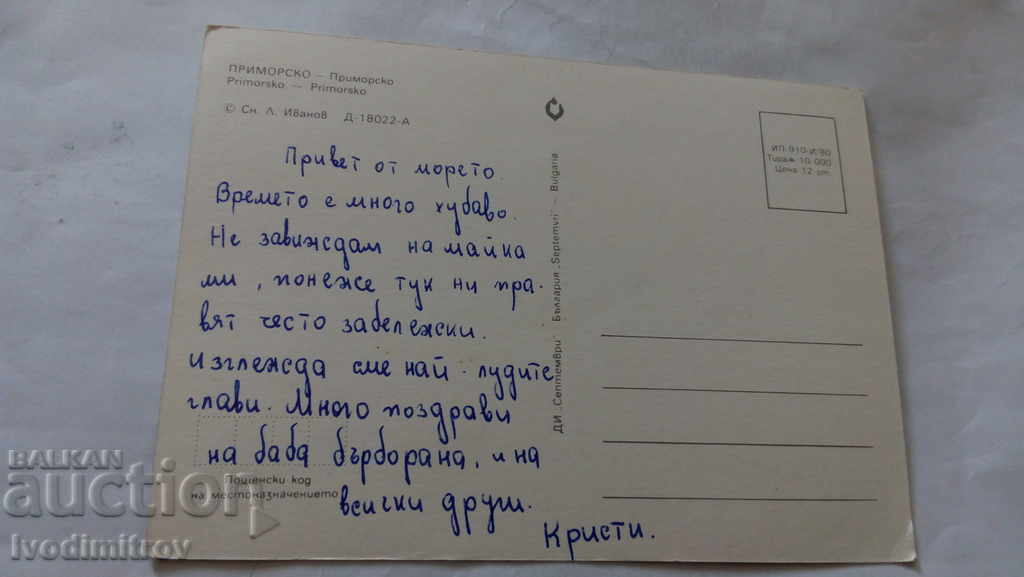 ПРИМОРСКО — Приморско
Primorsko — Primorsko
© Сн. Л. Иванов Д-18022-А
Привет от морето.
Времето е много хубаво.
Не завиждам на майка
ми, понеже тук ни пра-
вят често забележски.
Изглежда сме най-лудите
глави. Много поздрави
на баба бърборана, и на
всички други.
Кристи.
Пощенски код
на местоназначението
ДИ „Септември“ България „Septemvri“ — Bulgaria
ИП-910-И/80
Тираж 10 000
Цена 12 ст.
BALKAN
auction
Ivodimitrov